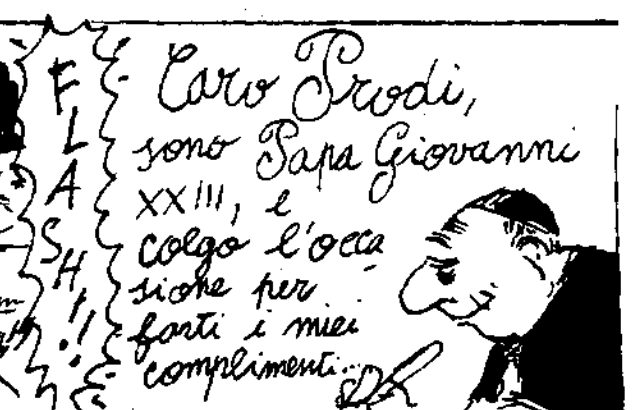 FLASH!!
Caro Prodi,
sono Papa Giovanni
XXIII, e
colgo l'occa
sione per
farti i miei
complimenti...